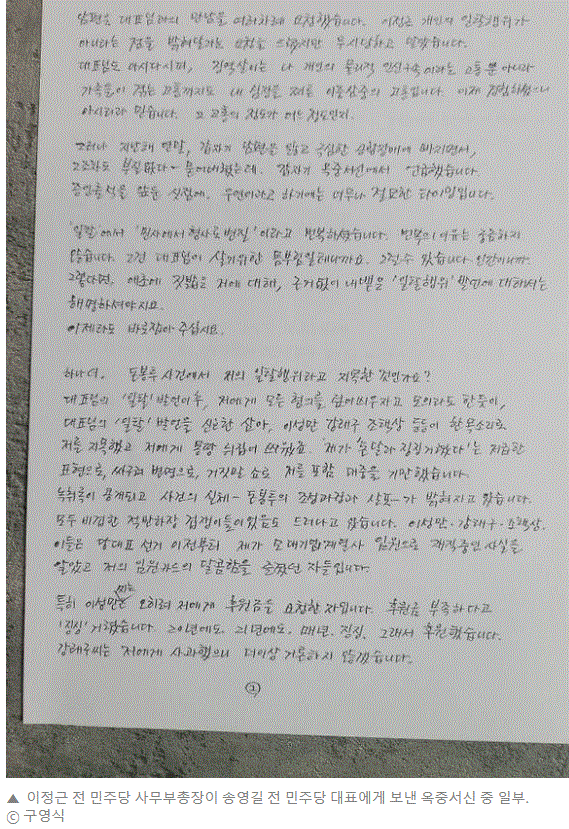 남편은 대표님과의 만남을 여러차례 요청했습니다. 이정근 개인의 일탈행위가
아니라는 점을 밝혀달라는 요청을 드렸지만 무시당하고 말았습니다.
대표님도 아시다시피, 징역살이는 나 개인의 물리적 인신구속이라는 고통 뿐 아니라
가족들이 겪는 고통까지도 내 심장을 찌르는 이중삼중의 고통입니다. 이제 경험하셨으니
아시리라 믿습니다. 그 고통의 정도가 어느 정도인지.
그러나 지난해 연말, 갑자기 남편은 닮고 극심한 에 빠지면서,
그조차도 부질없다~ 했는데. 갑자기 옥중서신에서 언급했습니다.
증인출석을 앞둔 시점에. 우연이라고 하기에는 너무나 절묘한 타이밍입니다.
'일탈'에서 '민사에서 형사로 변질'이라고 번복하셨습니다. 번복의 이유는 궁금하지
않습니다. 그건 대표님이 살기위한 몸부림일테니까요. 그럴수 있습니다 인간이니까.
그렇다면, 애초에 짓밟은 저에 대해, 근거없이 내뱉은 '일탈행위' 발언에 대해서는
해명하셔야지요.
이제라도 바로잡아 주십시오.
하나 더. 돈봉투 사건에서 저의 일탈행위라고 지목한 것인가요?
대표님의 '일탈' 발언이후, 저에게 모든 혐의를 덮어씌우자고 모의라도 한듯이,
대표님의 '일탈' 발언을 신호탄 삼아, 이성만 강래구 조택상 등등이 한목소리로
저를 지목했고 저에게 몽땅 뒤집어 씌웠죠. '제가 손 달라 징징거렸다'는 저급한
표현으로, 병명으로, 거짓말 쇼로 저를 포함 대중을 기만했습니다.
녹취록이 공개되고 사건의 실체 - 돈봉투의 조성과정과 살포 - 가 밝혀지고 있습니다.
모두 비겁한 적반하장 겁쟁이들이었음도 드러나고 있습니다. 이성만·강래구·조택상.
이들은 당대표 선거 이전부터 제가 모대기업계열사 임원으로 재직중인 사실을
알았고 저의 임원카드의 달콤함을 즐겼던 자들입니다.
특히 이성만씨는 오히려 저에게 후원금을 요청한 자입니다. 후원금 부족하다고
'징징'거렸습니다. 20년에도. 21년에도. 매년. 징징. 그래서 후원했습니다.
강래구씨는 저에게 사과했으니 더이상 거론하지 않겠습니다.
②
▲ 이정근 전 민주당 사무부총장이 송영길 전 민주당 대표에게 보낸 옥중서신 중 일부.
ⓒ 구영식